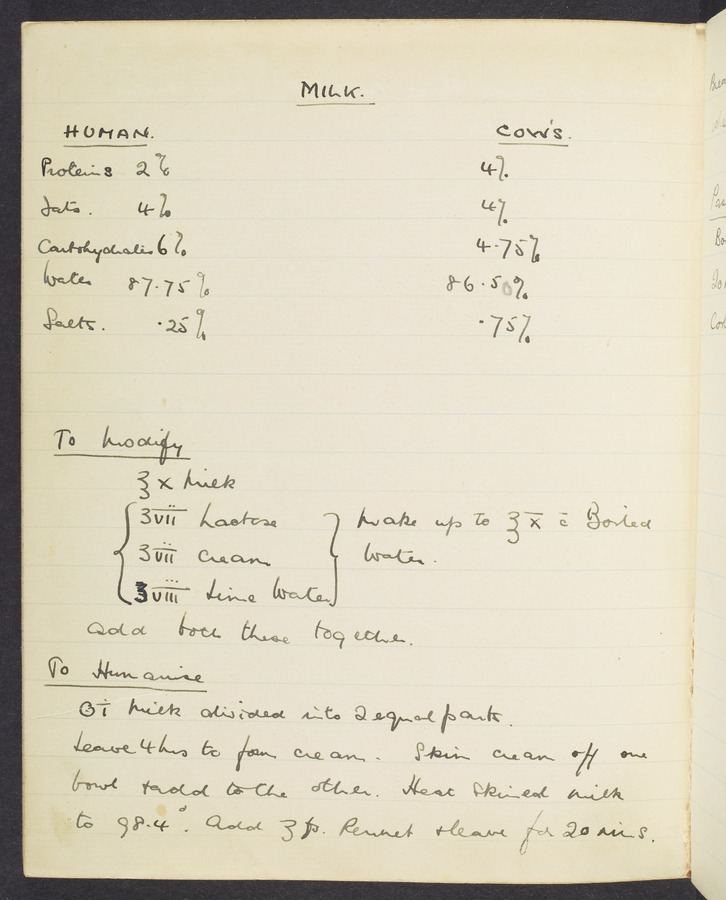 MILK.
HUMAN. COW'S.
Proteins 2% 4%
Fats. 4% 4%
Carbohydrates 6% 4.75%
Water 87.75% 86.50%
Salts. .25% .75%
To Modify
℥ x Milk
ʒ vii Lactose
ʒ vii cream
ʒ viii Lime Water
Make up to ℥ x c̄ Boiled
Water.
add both these together.
To Humanise
Oi Milk divided into 2 equal parts.
Leave 4 hrs to form cream. Skim cream off one
bowl & add to the other. Heat Skimed milk
to 98.4°. Add ʒ fs. Rennet & leave for 20 mins.